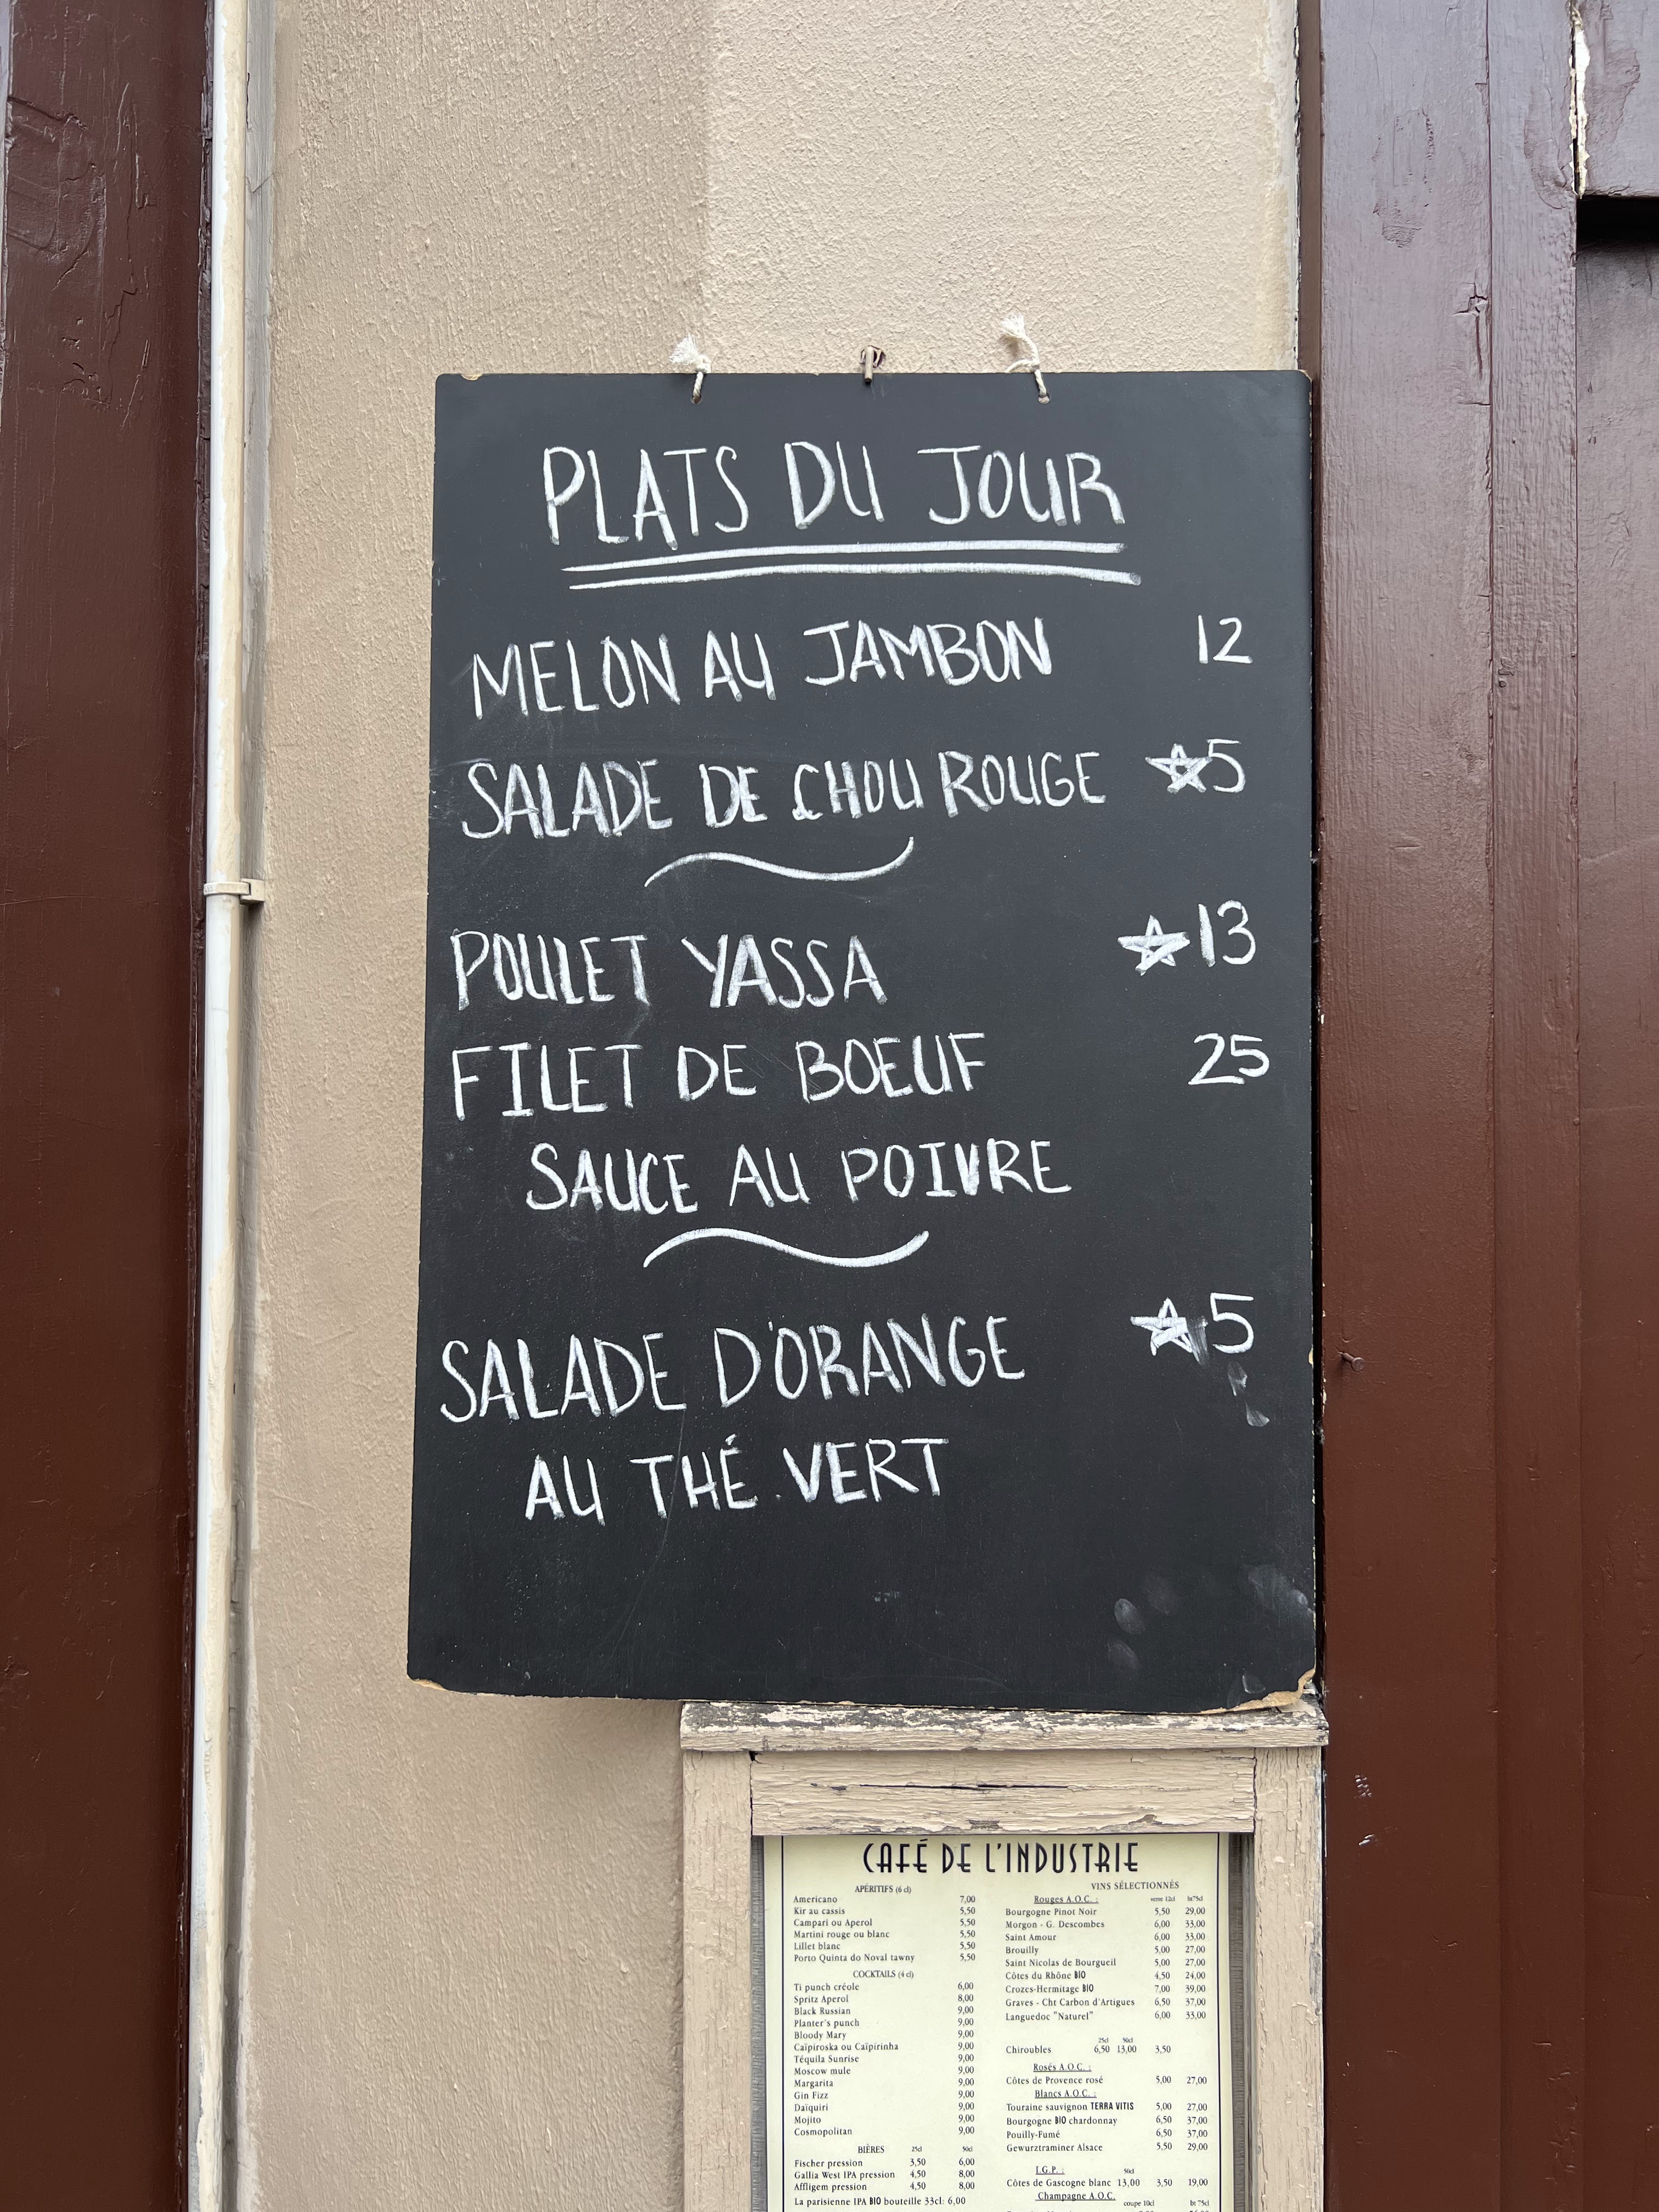 PLATS DU JOUR
MELON AU JAMBON 12
SALADE DE CHOU ROUGE ☆5
POULET YASSA ☆13
FILET DE BOEUF 25
SAUCE AU POIVRE
SALADE D'ORANGE ☆5
AU THÉ VERT
CAFÉ DE L'INDUSTRIE
APÉRITIFS (6 cl)
Americano 7,00
Kir au cassis 5,50
Campari ou Aperol 5,50
Martini rouge ou blanc 5,50
Lillet blanc 5,50
Porto Quinta do Noval tawny 5,50
COCKTAILS (4 cl)
Ti punch créole 6,00
Spritz Aperol 8,00
Black Russian 9,00
Planter's punch 9,00
Bloody Mary 9,00
Caïpiroska ou Caïpirinha 9,00
Téquila Sunrise 9,00
Moscow mule 9,00
Margarita 9,00
Gin Fizz 9,00
Daïquiri 9,00
Mojito 9,00
Cosmopolitan 9,00
BIÈRES 25cl 50cl
Fischer pression 3,50 6,00
Gallia West IPA pression 4,50 8,00
Affligem pression 4,50 8,00
La parisienne IPA BIO bouteille 33cl: 6,00
VINS SÉLECTIONNÉS
Rouges A.O.C. : verre 12cl bt75cl
Bourgogne Pinot Noir 5,50 29,00
Morgon - G. Descombes 6,00 33,00
Saint Amour 6,00 33,00
Brouilly 5,00 27,00
Saint Nicolas de Bourgueil 5,00 27,00
Côtes du Rhône BIO 4,50 24,00
Crozes-Hermitage BIO 7,00 39,00
Graves - Cht Carbon d'Artigues 6,50 37,00
Languedoc "Naturel" 6,00 33,00
25cl 50cl
Chiroubles 6,50 13,00 3,50
Rosés A.O.C. :
Côtes de Provence rosé 5,00 27,00
Blancs A.O.C. :
Touraine sauvignon TERRA VITIS 5,00 27,00
Bourgogne BIO chardonnay 6,50 37,00
Pouilly-Fumé 6,50 37,00
Gewurztraminer Alsace 5,50 29,00
I.G.P. : 50cl
Côtes de Gascogne blanc 13,00 3,50 19,00
Champagne A.O.C. coupe 10cl bt 75cl